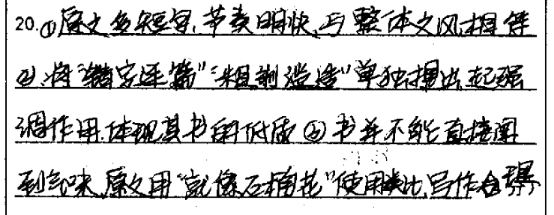 20.①原文多短句,节奏明快,与整体文风相符
②.将“错字连篇”“粗制滥造”单独摘出,起强
调作用,体现其书的低质 ③书并不能直接闻
到气味,原文用“就像石榴花”使用类比,写作